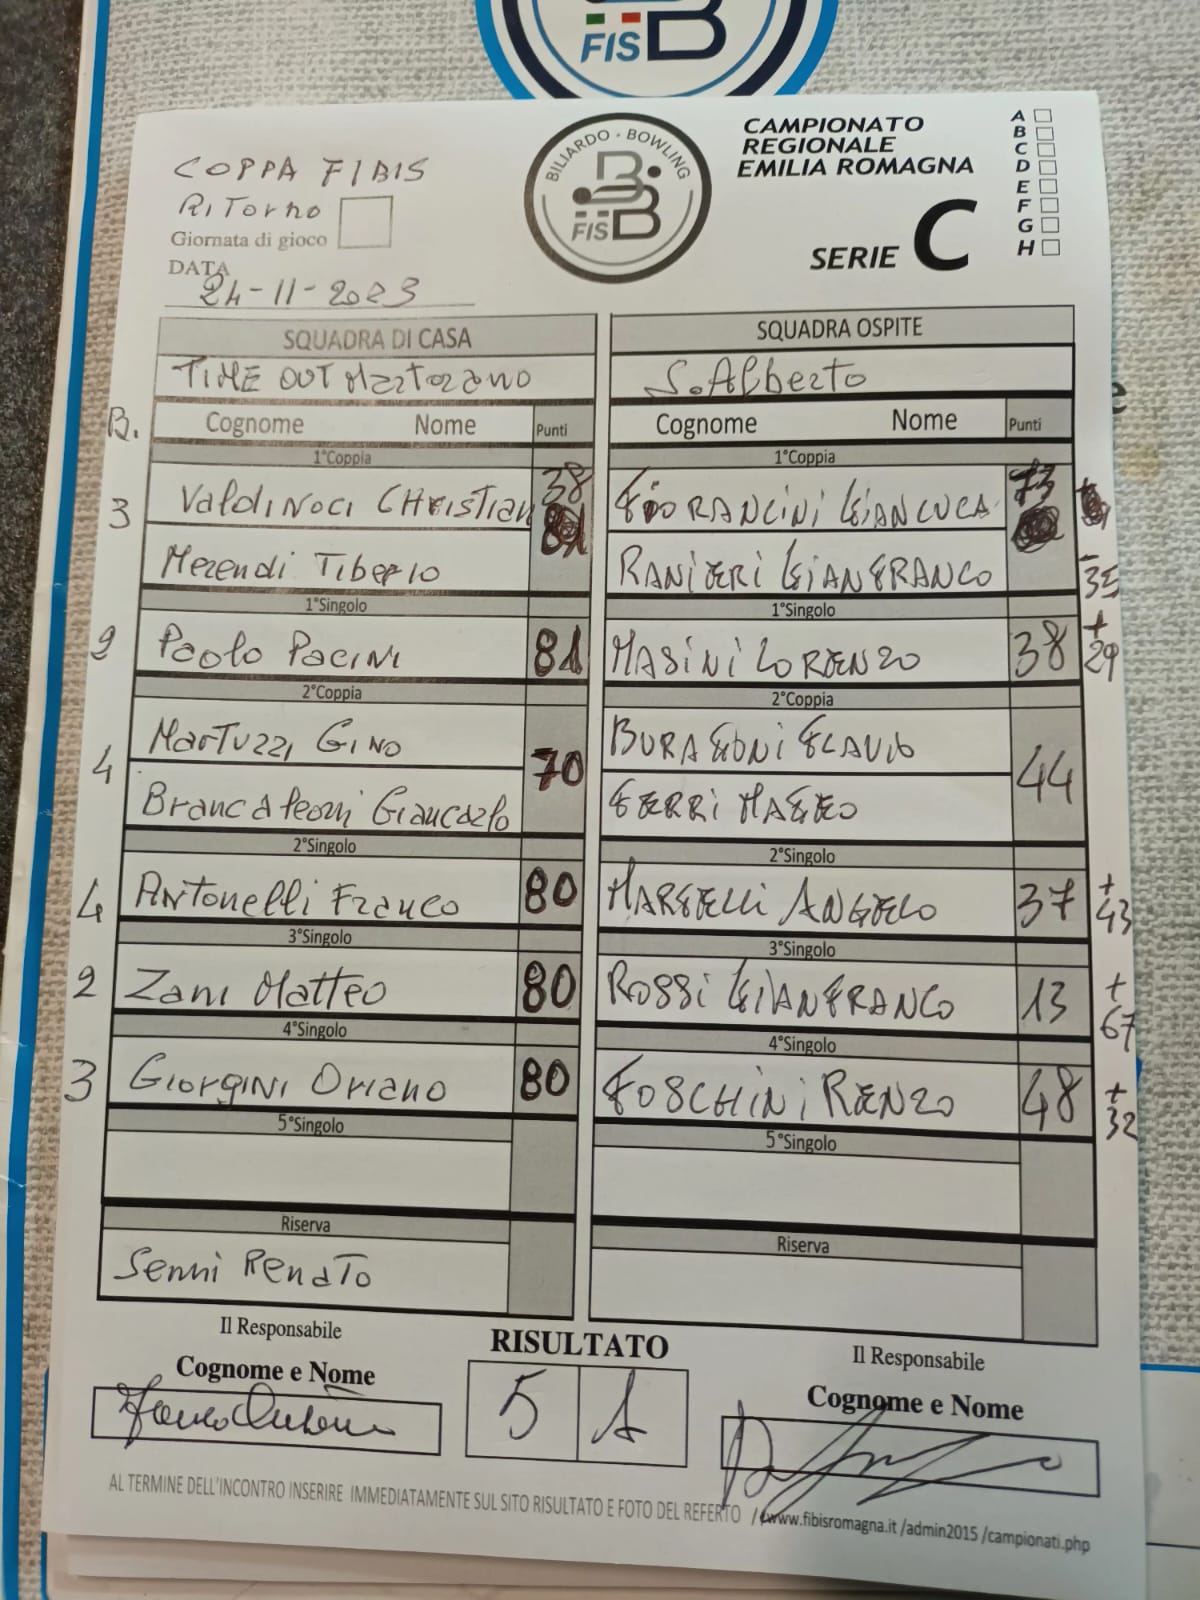 FISB
COPPA FIBIS
RITORNO
Giornata di gioco
DATA
24-11-2023
BILIARDO · BOWLING
FISB
CAMPIONATO
REGIONALE
EMILIA ROMAGNA
SERIE C
A
B
C
D
E
F
G
H
SQUADRA DI CASA
SQUADRA OSPITE
TIME OUT Martorano
S. Alberto
B. Cognome Nome Punti
Cognome Nome Punti
1°Coppia
1°Coppia
3 Valdinoci CHRistian 38
FIORANCINI GIANLUCA 73
Merendi Tiberio
RANIERI GIANFRANCO -35
1°Singolo
1°Singolo
2 Paolo Pacini 81
MASINI LORENZO 38 +29
2°Coppia
2°Coppia
Martuzzi Gino
4 70
44
Brancaleoni Giancarlo
FERRI MATTEO
2°Singolo
2°Singolo
4 Antonelli Franco 80
ANGELO 37 +43
3°Singolo
3°Singolo
2 Zani Matteo 80
ROSSI GIANFRANCO 13 +67
4°Singolo
4°Singolo
3 Giorgini Oriano 80
FOSCHINI RENZO 48 +32
5°Singolo
5°Singolo
Riserva
Riserva
Senni Renato
Il Responsabile
RISULTATO
Il Responsabile
Cognome e Nome
Cognome e Nome
5 1
AL TERMINE DELL'INCONTRO INSERIRE IMMEDIATAMENTE SUL SITO RISULTATO E FOTO DEL REFERTO / www.fibisromagna.it /admin2015 /campionati.php